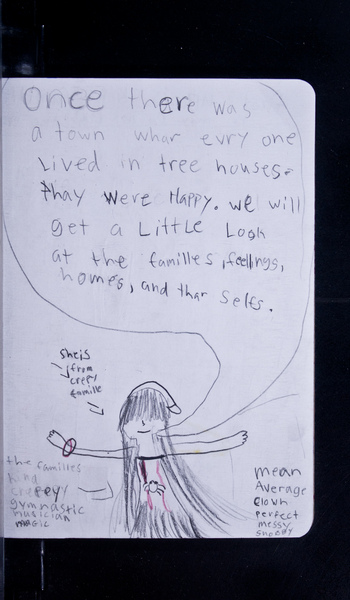 Once there was
a town whar evry one
Lived in tree houses.
thay were Happy. we will
get a Little Look
at the families, feelings,
homes, and thar selfs.
Sheis
from
crepy
famille
the families
kind
creepy
gymnastic
musician
magic
mean
Average
Clowh
perfect
messy
snoopy